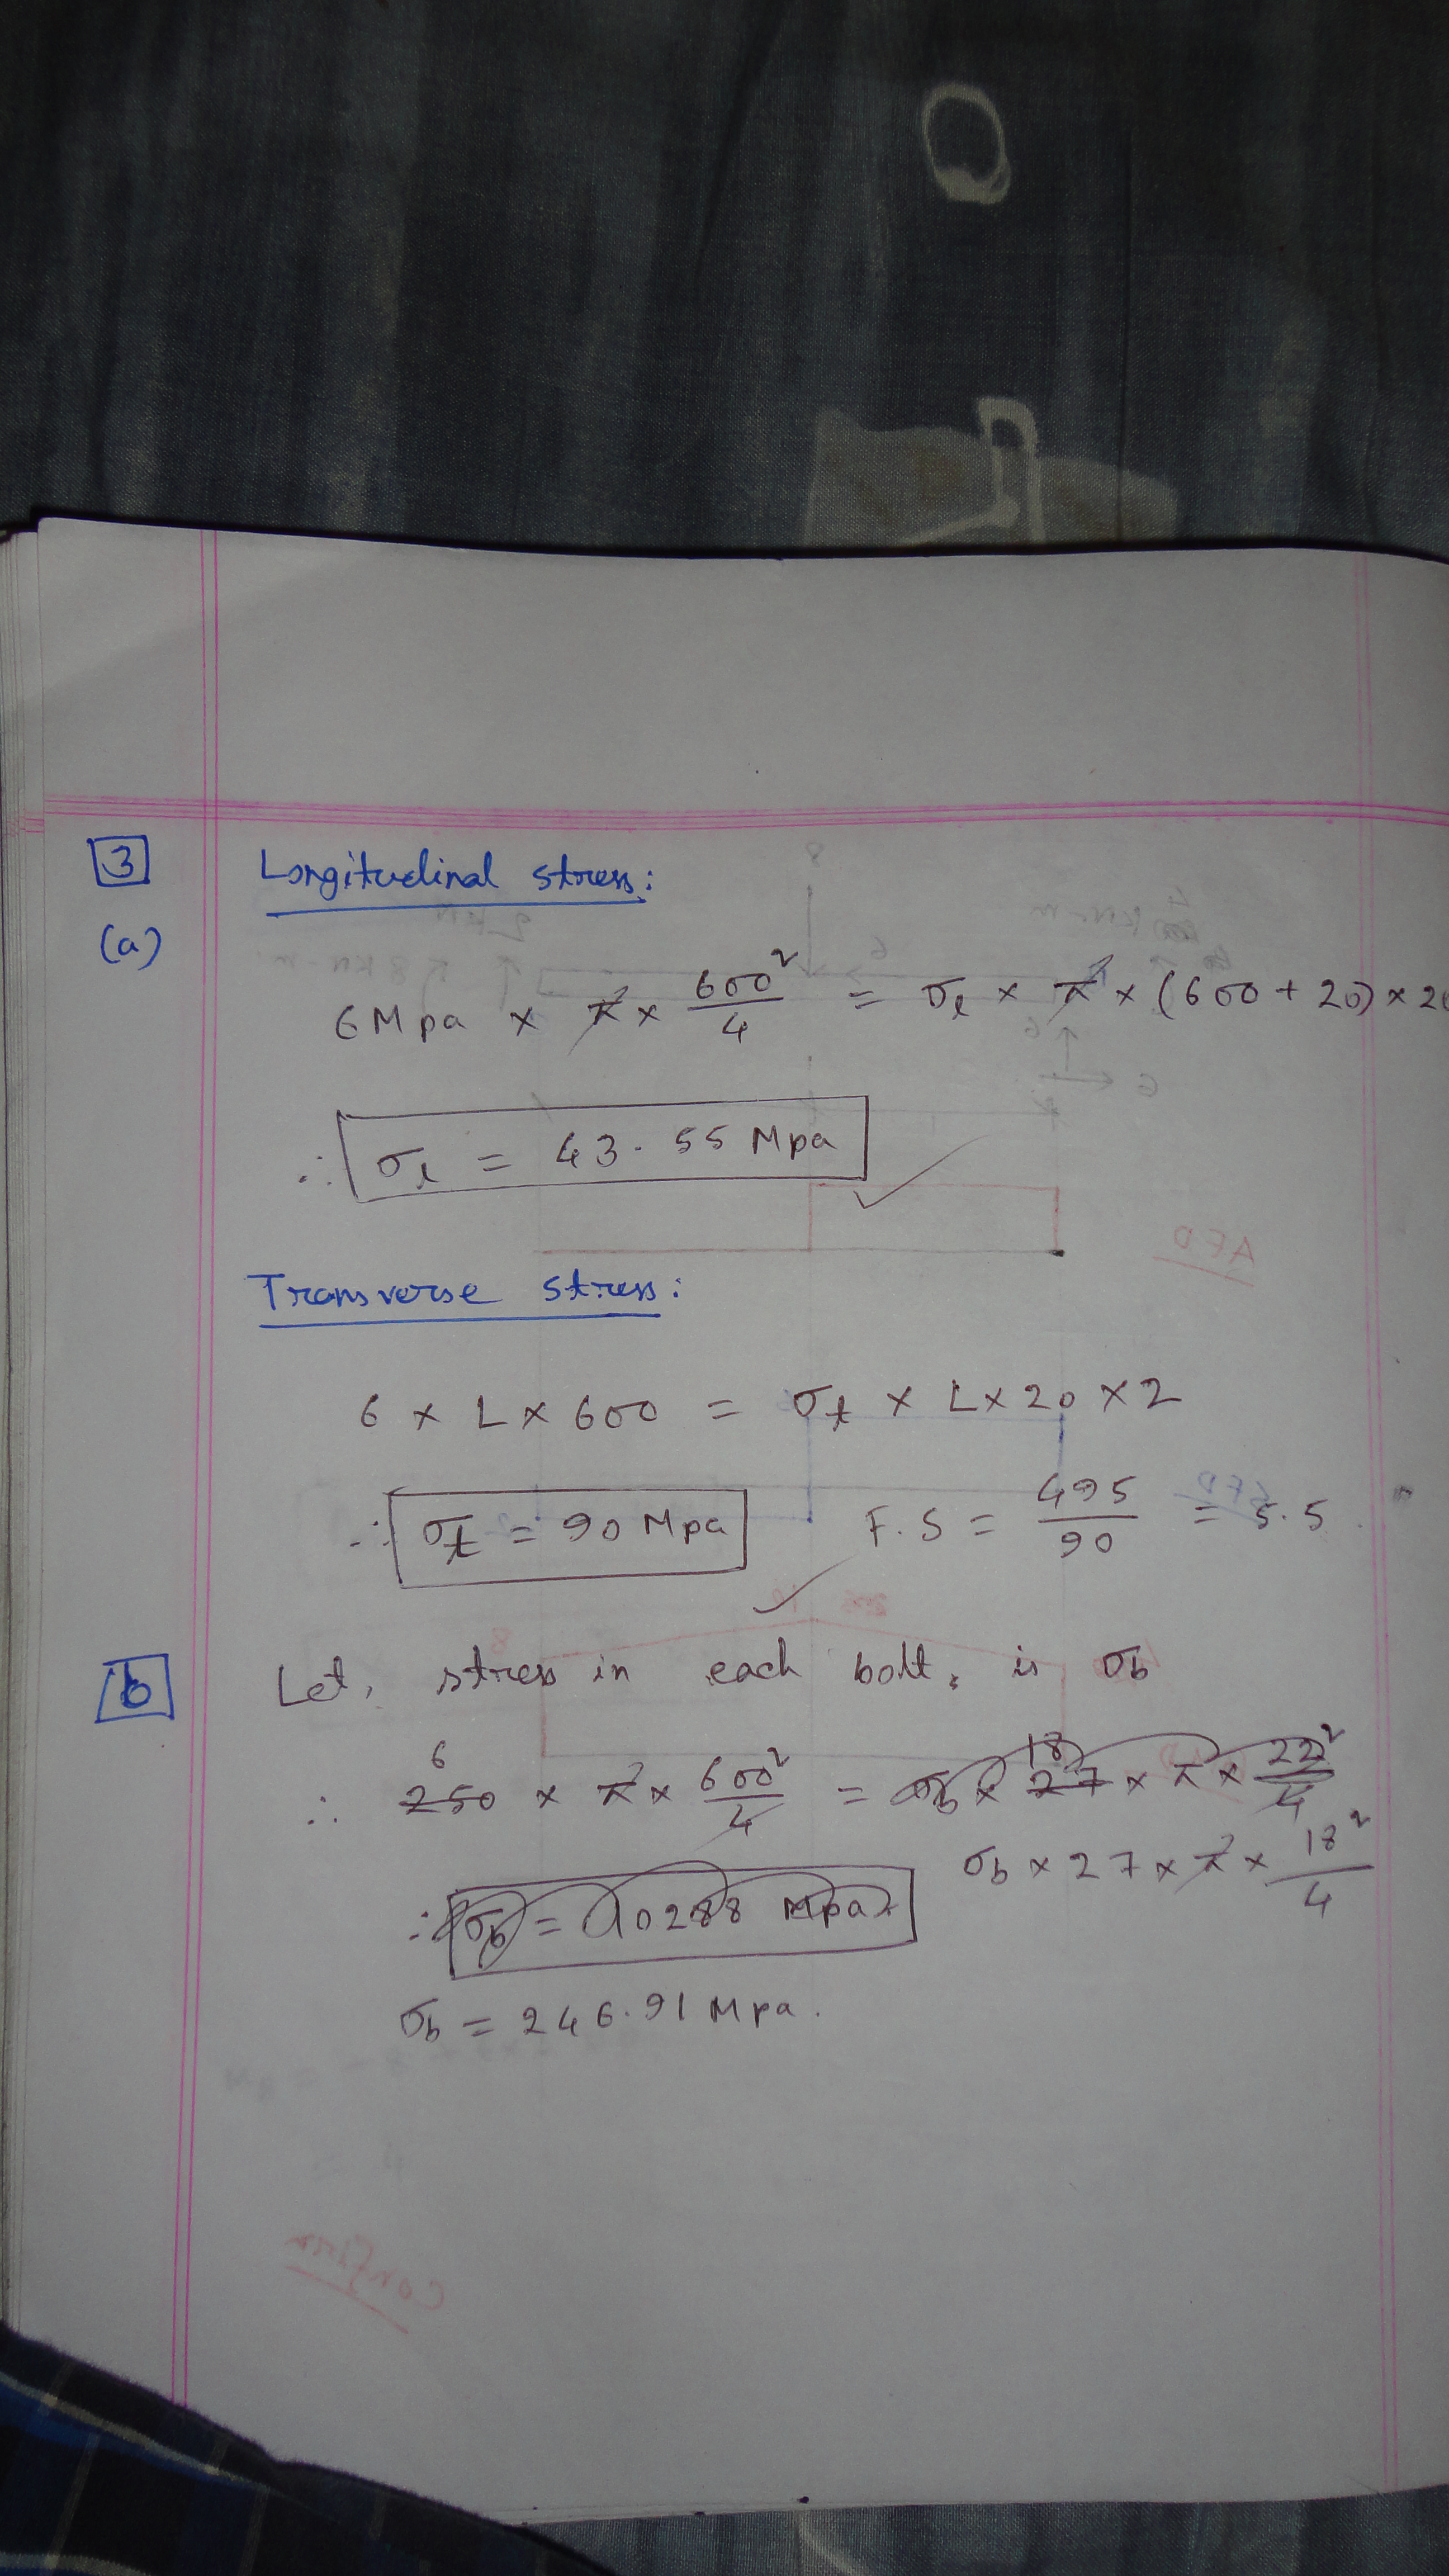 3 Longitudinal stress:
(a)
6 Mpa × π × 600²/4 = σℓ × π × (600 + 20) × 20
∴ σℓ = 43.55 Mpa
Transverse stress:
6 × L × 600 = σt × L × 20 × 2
∴ σt = 90 Mpa F.S = 495/90 = 5.5
b Let, stress in each bolt, is σb
6
∴ 250 × π × 600²/4 = σb × 27 × π × 22²/4
18
σb × 27 × π × 18²/4
∴ σb = 10288 Mpa
σb = 246.91 Mpa.